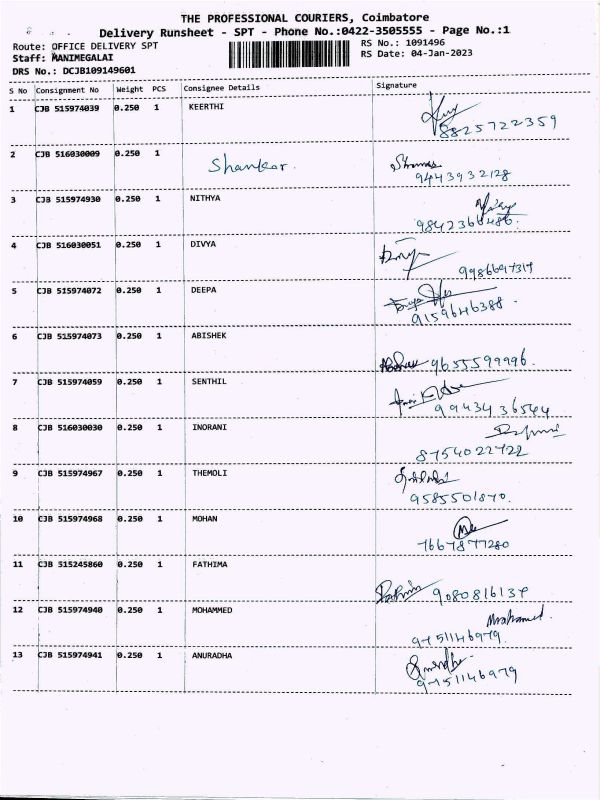 THE PROFESSIONAL COURIERS, Coimbatore
Delivery Runsheet - SPT - Phone No.:0422-3505555 - Page No.:1
Route: OFFICE DELIVERY SPT
RS No.: 1091496
Staff: MANIMEGALAI
RS Date: 04-Jan-2023
DRS No.: DCJB109149601
S No Consignment No Weight PCS Consignee Details Signature
1 CJB 515974039 0.250 1 KEERTHI
8825722359
2 CJB 516030009 0.250 1 Shankar.
9443932128
3 CJB 515974930 0.250 1 NITHYA
9842366486.
4 CJB 516030051 0.250 1 DIVYA
5 CJB 515974072 0.250 1 DEEPA
9159646388.
6 CJB 515974073 0.250 1 ABISHEK
9655599996.
7 CJB 515974059 0.250 1 SENTHIL
9943436544
8 CJB 516030030 0.250 1 INDRANI
8754022722
9 CJB 515974967 0.250 1 THEMOLI
9585501870.
10 CJB 515974968 0.250 1 MOHAN
7667877280
11 CJB 515245860 0.250 1 FATHIMA
9080816137
12 CJB 515974940 0.250 1 MOHAMMED
Mohamed.
9751146979.
13 CJB 515974941 0.250 1 ANURADHA
9751146979